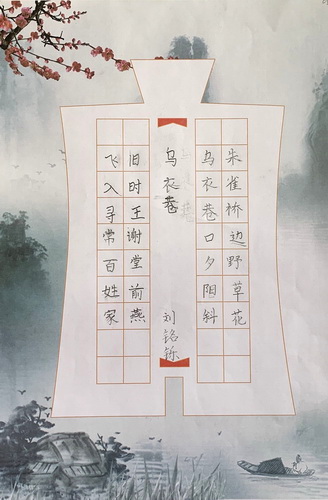 朱雀桥边野草花
乌衣巷口夕阳斜
乌衣巷
刘铭铄
旧时王谢堂前燕
飞入寻常百姓家